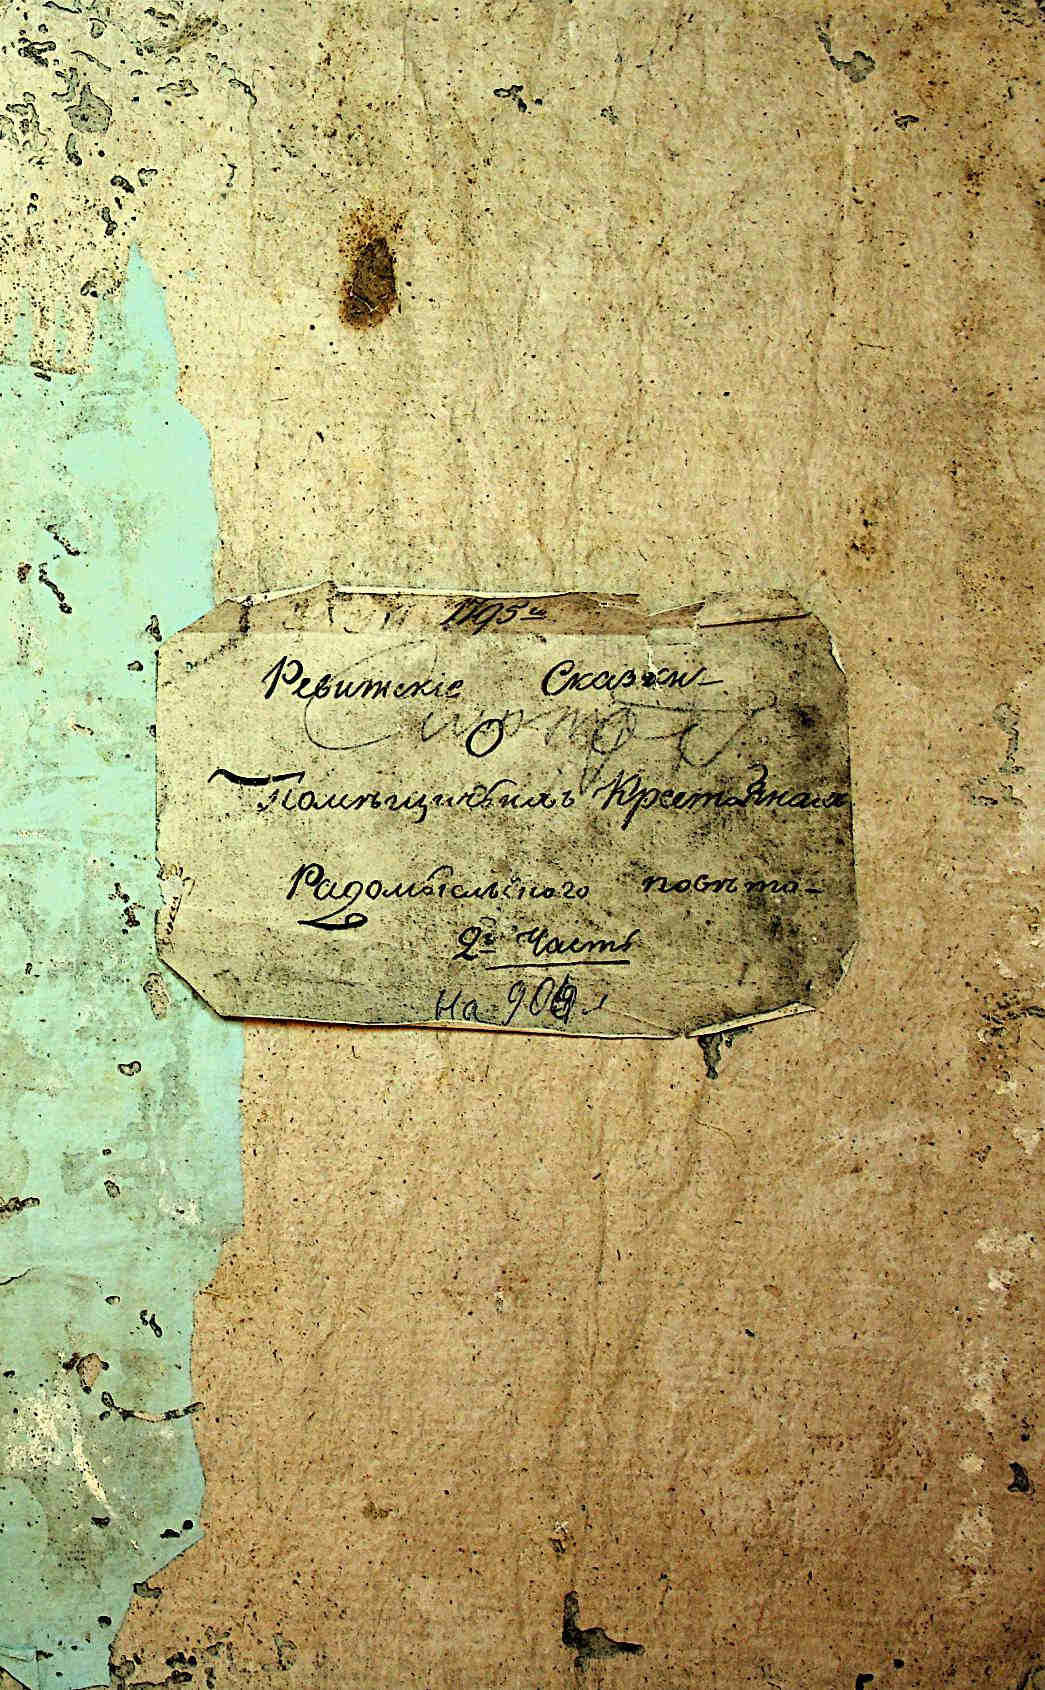 1795 го
Ревижскіе Сказки
О
Помѣщичьихъ Крестьянах
Радомысльского повѣта
2я Часть
На 909 л